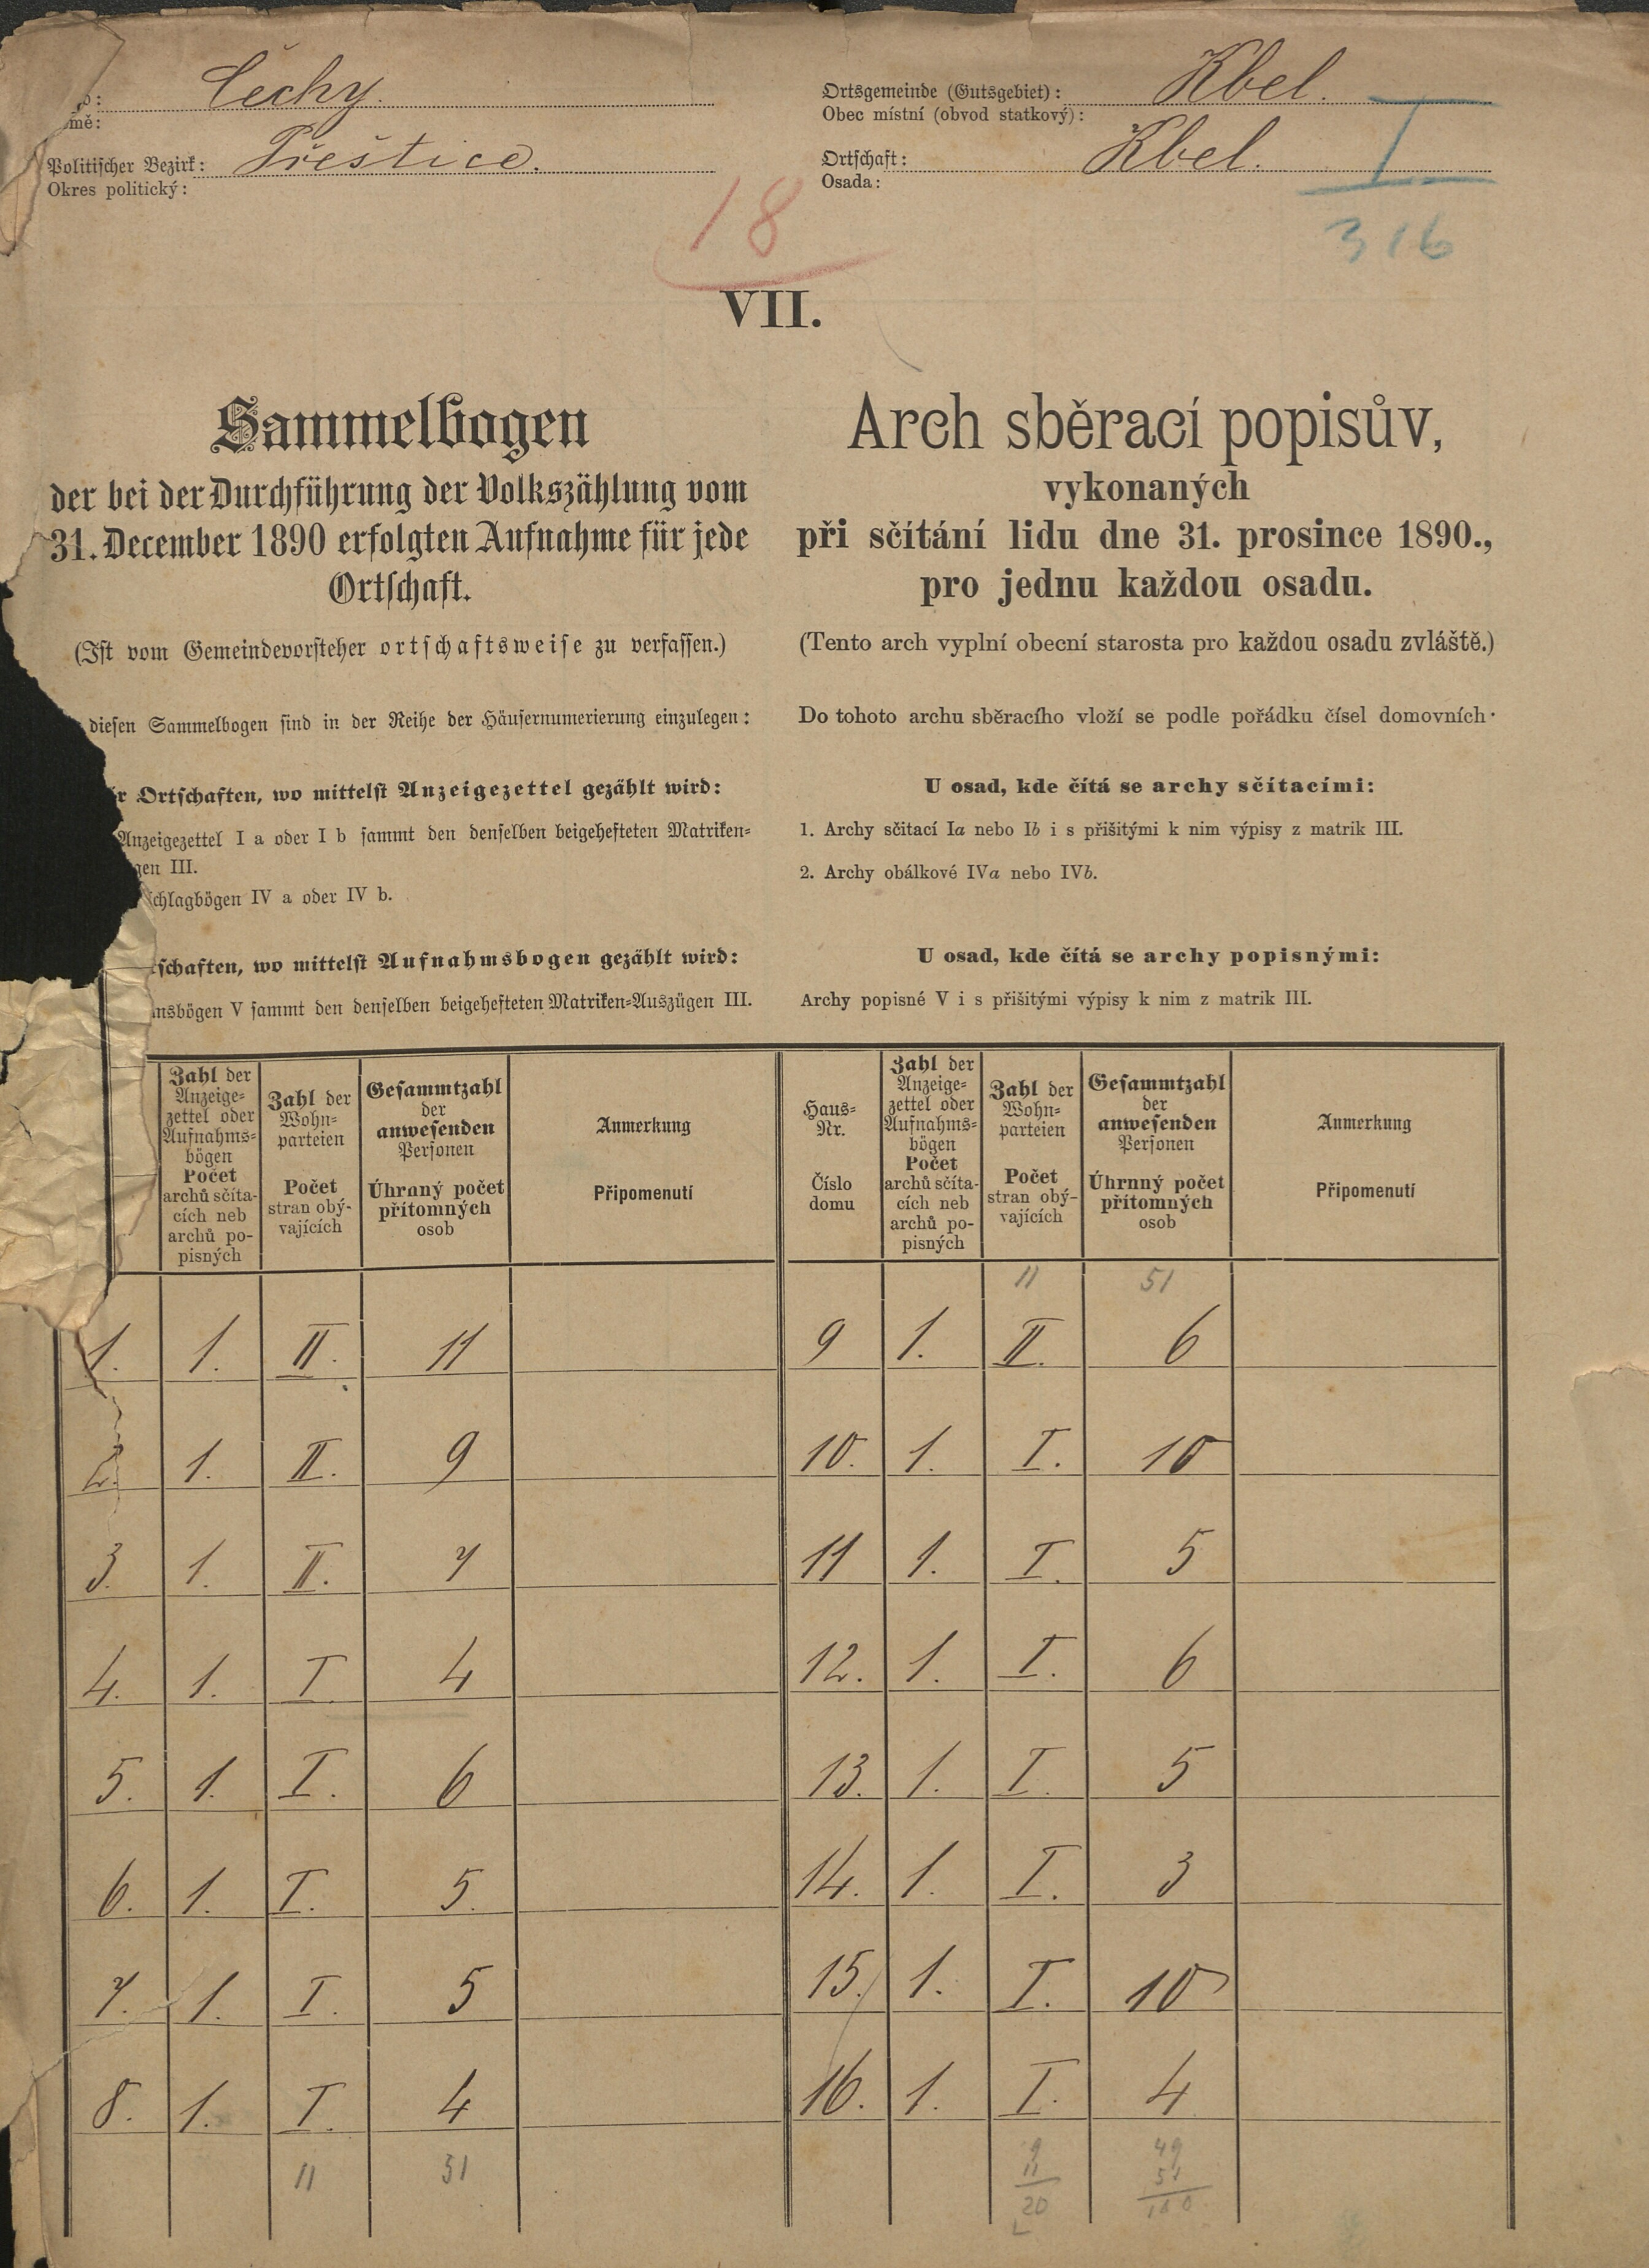 Čechy.
Ortsgemeinde (Gutsgebiet): Kbel.
Obec místní (obvod statkový):
Politischer Bezirk: Přeštice.
Okres politický:
Ortschaft: Kbel. I
Osada:
18
316
VII.
Sammelbogen
der bei der Durchführung der Volkszählung vom
31. December 1890 erfolgten Aufnahme für jede
Ortschaft.
(Ist vom Gemeindevorsteher ortschaftsweise zu verfassen.)
diesen Sammelbogen sind in der Reihe der Häusernumerierung einzulegen:
Ortschaften, wo mittelst Anzeigezettel gezählt wird:
Anzeigezettel I a oder I b sammt den denselben beigehefteten Matriken-
gen III.
schlagbögen IV a oder IV b.
tschaften, wo mittelst Aufnahmsbogen gezählt wird:
msbögen V sammt den denselben beigehefteten Matriken-Auszügen III.
Arch sběrací popisův,
vykonaných
při sčítání lidu dne 31. prosince 1890.,
pro jednu každou osadu.
(Tento arch vyplní obecní starosta pro každou osadu zvláště.)
Do tohoto archu sběracího vloží se podle pořádku čísel domovních·
U osad, kde čítá se archy sčítacími:
1. Archy sčitací Ia nebo Ib i s přišitými k nim výpisy z matrik III.
2. Archy obálkové IVa nebo IVb.
U osad, kde čítá se archy popisnými:
Archy popisné V i s přišitými výpisy k nim z matrik III.
Zahl der
Anzeige-
zettel oder
Aufnahms-
bögen
Počet
archů sčíta-
cích neb
archů po-
pisných
Zahl der
Wohn-
parteien
Počet
stran obý-
vajících
Gesammtzahl
der
anwesenden
Personen
Úhrnný počet
přítomných
osob
Anmerkung
Připomenutí
Haus-
Nr.
Číslo
domu
Zahl der
Anzeige-
zettel oder
Aufnahms-
bögen
Počet
archů sčíta-
cích neb
archů po-
pisných
Zahl der
Wohn-
parteien
Počet
stran obý-
vajících
Gesammtzahl
der
anwesenden
Personen
Úhrnný počet
přítomných
osob
Anmerkung
Připomenutí
11 51
1. 1. II. 11
9 1. II. 6
2. 1. II. 9
10. 1. I. 10
3. 1. II. 7
11 1. I. 5
4. 1. I 4
12. 1. I. 6
5. 1. I. 6
13. 1. I. 5
6. 1. I. 5.
14. 1. I. 3
7. 1. I. 5
15. 1. I. 10
8. 1. I. 4
16. 1. I. 4
11 51
9 49
11 51
20 100